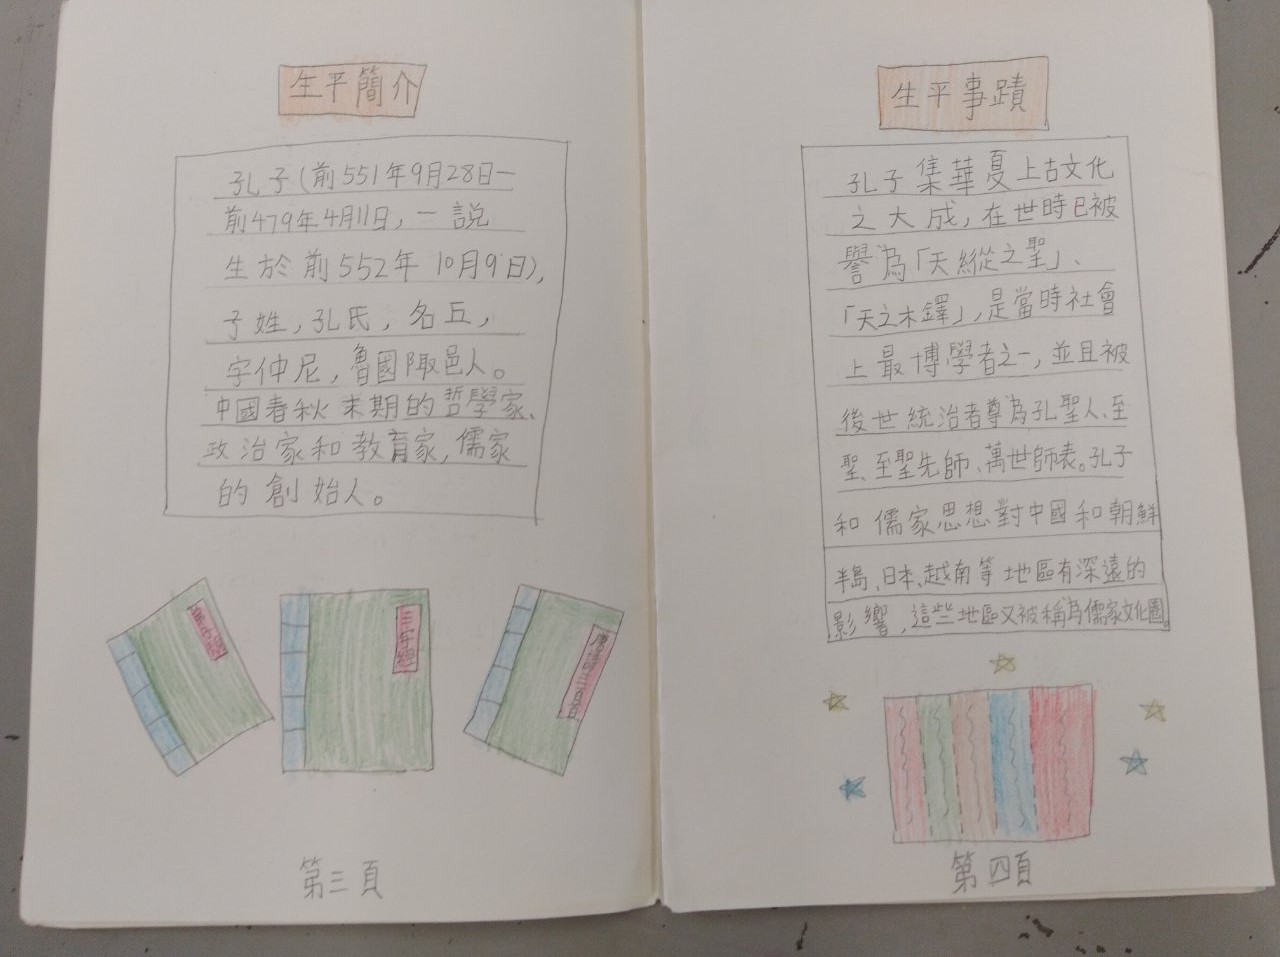 生平簡介
孔子(前551年9月28日一
前479年4月11日,一說
生於前552年10月9日),
子姓,孔氏,名丘,
字仲尼,魯國陬邑人。
中國春秋末期的哲學家、
政治家和教育家,儒家
的創始人。
三字經
唐詩三百首
第三頁
生平事蹟
孔子集華夏上古文化
之大成,在世時已被
譽為「天縱之聖」、
「天之木鐸」,是當時社會
上最博學者之一,並且被
後世統治者尊為孔聖人、至
聖、至聖先師、萬世師表。孔子
和儒家思想對中國和朝鮮
半島、日本、越南等地區有深遠的
影響,這些地區又被稱為儒家文化圈。
第四頁